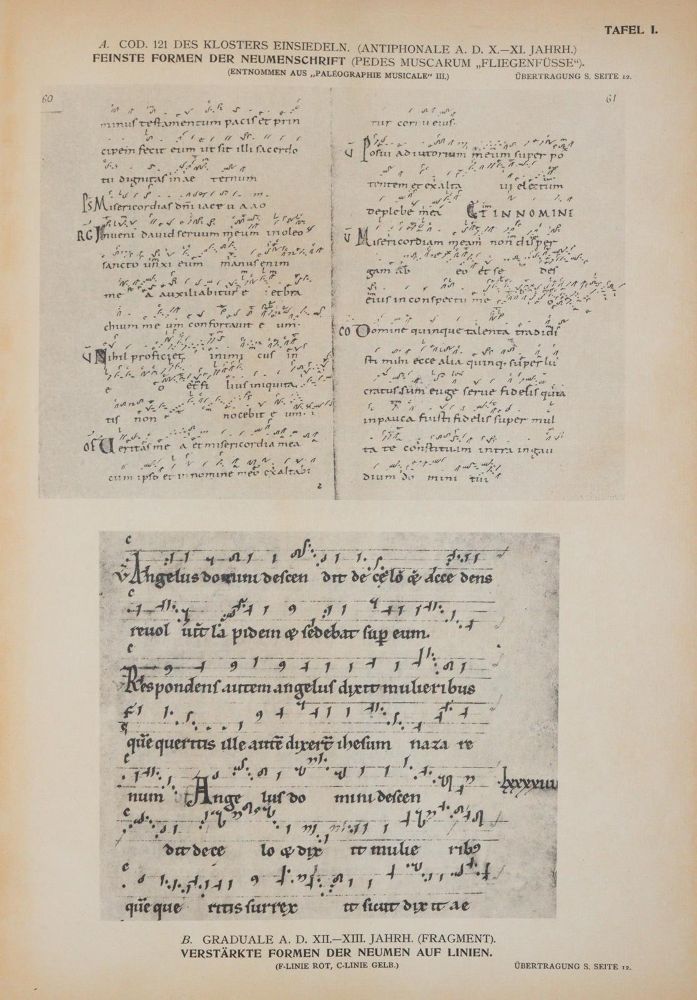 TAFEL I.
A. COD. 121 DES KLOSTERS EINSIEDELN. (ANTIPHONALE A. D. X.—XI. JAHRH.)
FEINSTE FORMEN DER NEUMENSCHRIFT (PEDES MUSCARUM „FLIEGENFÜSSE“).
(ENTNOMMEN AUS „PALÉOGRAPHIE MUSICALE“ III.)
ÜBERTRAGUNG S. SEITE 12.
60
minus testamentum pacis et prin
cipem fecit eum ut sit illi sacerdo
tu dignitas in ae ternum
Ps Misericordias dñi
RG Inveni david servum meum in oleo
sancto unxi eum manus enim
me a auxiliabitur e et bra
chium me um confortavit e um
V Nihil proficiet inimi cus in
e o et fi lius iniquita
tis non nocebit e um
OF Veritas me a et misericordia mea
cum ipso et in nomine meo exaltabi
2
61
tur cornu eius
V Posui adiutorium meum super po
tentem et exalta vi electum
de plebe mea ET IN NOMINE
V Misericordiam meam non disper
gam ab eo et se des
eius in conspectu me
CO Domine quinque talenta tradidi
sti mihi ecce alia quinq; super lu
cratus sum euge serve fidelis quia
in pauca fuisti fidelis super mul
ta te constituam intra in gau
dium do mini tui
c
V Angelus domini descen dit de celo & acce dens
revol vit lapidem & sedebat sup eum.
c
Respondens autem angelus dixit mulieribus
que queritis ille aute dixert ihesum naza re
c
num Ange lus do mini descen lxxxxiiii
c
dit de ce lo & dix it mulie rib
c
que que ritis surrex it sicut dix it ae
B. GRADUALE A. D. XII.—XIII. JAHRH. (FRAGMENT).
VERSTÄRKTE FORMEN DER NEUMEN AUF LINIEN.
(F-LINIE ROT, C-LINIE GELB.)
ÜBERTRAGUNG S. SEITE 12.